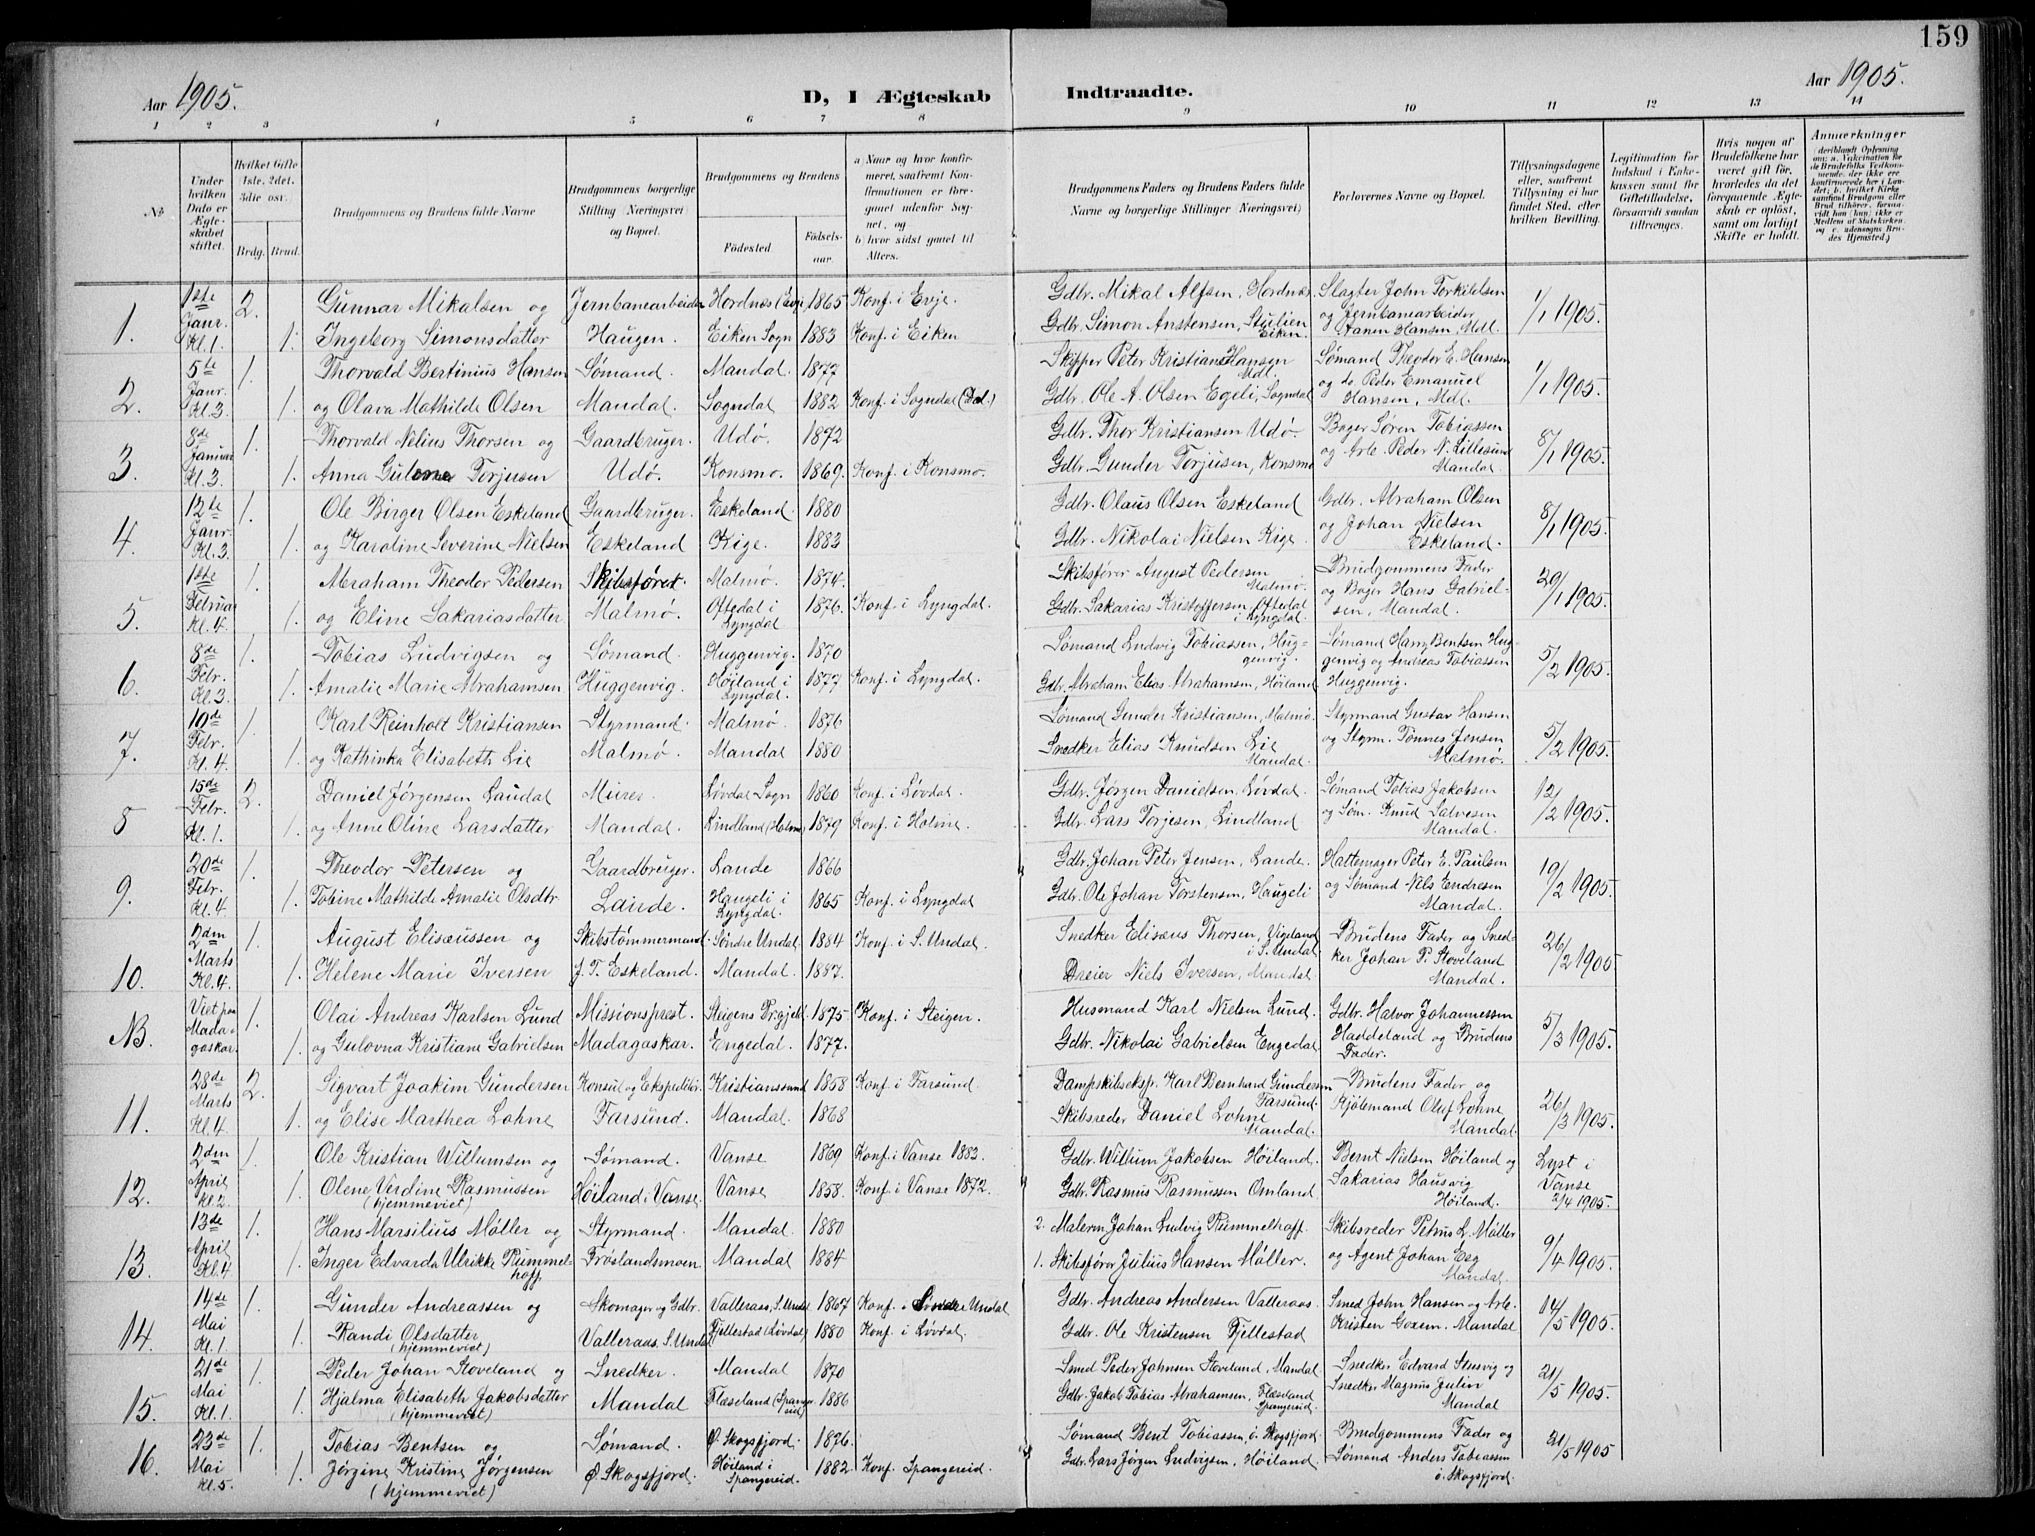 159
Aar 1905.
D, I Ægteskab Indtraadte.
Aar 1905.
1 2 3 4 5 6 7 8 9 10 11 12 13 14
No
Under hvilken Dato er Ægteskabet stiftet.
Hvilket Gifte (1ste, 2det, 3die osv.
Brdg. Brud.
Brudgommens og Brudens fulde Navne
Brudgommens borgerlige Stilling (Næringsvei) og Bopæl.
Brudgommens og Brudens
Födested. Födselsaar.
a) Naar og hvor konfirmeret, saafremt Konfirmationen er foregaaet udenför Sognet, og
b) hvor sidst gaaet til Alters.
Brudgommens Faders og Brudens Faders fulde Navne og borgerlige Stillinger (Næringsvei)
Forlovernes Navne og Bopæl.
Tillysningsdagene eller, saafremt Tillysning ei har fundet Sted, efter hvilken Bevilling.
Legitimation for Indskud i Enkekassen samt for Giftetilladelse, forsaavidt saadan tiltrænges.
Hvis nogen af Brudefolkene har været gift för, hvorledes da det foregaaende Ægteskab er oplöst, samt om lovligt Skifte er holdt.
Anmærkninger (deriblandt Oplysning om: a. Vakcination for de Brudefolks Vedkommende, der ikke ere konfirmerede her i Landet; b. hvilket Kirkesamfund Brudgom eller Brud tilhörer, forsaavidt han (hun) ikke er Medlem af Statskirken, og c. udensogns Brudes Hjemsted.)
1. 1ste Janr. Kl. 1. 2. Gunnar Mikalsen og Jernbanearbeider Hordnes (Evje) 1865 Konf. i Evje. Gdbr. Mikal Alfsen, Hordnes Slagter John Torkildsen og Jernbanearbeider Hansen, Mdl. 1/1 1905.
1. Ingeborg Simonsdatter Haugen. Eiken Sogn 1883 Konf. i Eiken Gdbr. Simon Anstensen, Eiken.
2. 5te Janr. Kl. 3. 1. Thorvald Bertinius Hansen Sømand. Mandal. 1877 Skipper Peter Kristian Hansen Mdl. Sømand Theodor E. Hansen og do. Peder Emanuel Hansen, Mdl. 1/1 1905.
1. og Olava Mathilde Olsen Mandal. Sogndal 1882 Konf. i Sogndal (Dal.) Gdbr. Ole A. Olsen Egeli, Sogndal
3. 8de Januar Kl. 3. 1. Thorvald Nelius Thorsen og Gaardbruger. Udø. 1872 Gdbr. Thor Kristiansen Udø. Bager Søren Tobiassen og Arb. Peder N. Lillesund Mandal. 8/1 1905.
1. Anna Gulowna Torjusen Udø. Konsmo. 1869. Konf. i Konsmo. Gdbr. Gunder Torjusen, Konsmo
4. 12te Janr. Kl. 3. 1. Ole Birger Olsen Eskeland Gaardbruger. Eskeland. 1880 Gdbr. Olaus Olsen Eskeland Gdbr. Abraham Olsen og Johan Nielsen Eskeland. 8/1 1905.
1. og Karoline Severine Nielsen Eskeland Kige. 1883 Gdbr. Nikolai Nielsen Kige.
5. 1ste Februar Kl. 4. 1. Abraham Theodor Pedersen Skibsfører. Malmø. 1874. Skibsfører August Pedersen Malmø. Brudgommens Fader og Bager Hans Gabrielsen, Mandal. 29/1 1905.
1. og Eline Sakariasdatter Malmø. Oftedal i Lyngdal 1876. Konf. i Lyngdal. Gdbr. Sakarias Kristoffersen Oftedal i Lyngdal.
6. 8de Febr. Kl. 3. 1. Tobias Ludvigsen og Sømand. Huggenvig. 1870 Sømand Ludvig Tobiassen, Huggenvig. Sømand Harry Bentsen Huggenvig og Andreas Tobiassen Huggenvig. 5/2 1905.
1. Amalie Marie Abrahamsen Huggenvig. Høiland i Lyngdal. 1877 Konf. i Lyngdal. Gdbr. Abraham Elias Abrahamsen, Høiland
7. 10de Febr. Kl. 4. 1. Karl Reinholt Kristiansen Styrmand. Malmø. 1876 Sømand Gunder Kristiansen, Malmø. Styrmand Gustav Hansen og Styrm. Tønnes Jensen Malmø. 5/2 1905.
1. og Kathinka Elisabeth Lie Malmø. Mandal 1880 Snedker Elias Knudsen Lie Mandal.
8 15de Febr. Kl. 1. 2. Daniel Jørgensen Laudal Murer Løvdal Sogn 1860 Konf. i Løvdal. Gdbr. Jørgen Danielsen, Løvdal. Sømand Tobias Jakobsen og Søm. Knud Salvesen Mandal. 12/2 1905.
1. og Anne Oline Larsdatter Mandal. Lindland (Holme) 1879 Konf. i Holme. Gdbr. Lars Torjesen, Lindland
9. 20de Febr. Kl. 4. 1. Theodor Petersen og Gaardbruger. Lande 1866 Gdbr. Johan Peter Jensen, Lande. Hattemager Peter E. Paulsen og Sømand Nils Endresen Mandal. 19/2 1905.
1. Tobine Mathilde Amalie Olsdtr. Lande. Haugeli i Lyngdal. 1865 Konf. i Lyngdal Gdbr. Ole Johan Torstensen, Haugeli
10. 2dm Marts Kl. 4. 1. August Elisæussen og Skibstømmermand. Søndre Undal. 1884 Konf. i S. Undal. Snedker Elisæus Thorsen, Vigeland i S. Undal. Brudens Fader og Snedker Johan P. Stoveland Mandal. 26/2 1905
1. Helene Marie Iversen J. T. Eskeland. Mandal. 1887. Dreier Niels Iversen, Mandal.
NB. Viet paa Madagaskar. 1. Olai Andreas Karlsen Lund Missionsprest. Steigens Prgjeld 1875 Konf. i Steigen. Husmand Karl Nielsen Lund. Gdbr. Halvor Johannessen Haddeland og Brudens Fader. 5/3 1905.
1. og Gulovna Kristiane Gabrielsen Madagaskar. Engedal. 1877. Gdbr. Nikolai Gabrielsen Engedal
11. 28de Marts Kl. 4. 2. Sigvart Joakim Gundersen Konsul og Ekspeditør. Kristianssund 1858 Konf. i Farsund. Dampskibseksp. Karl Bernhard Gundersen Farsund. Brudens Fader og Kjøbmand Oluf Lohne Mandal. 26/3 1905.
1. og Elise Marthea Lohne Farsund. Mandal. 1868 Skibsreder Daniel Lohne Mandal.
12. 2dm April Kl. 2. 1. Ole Kristian Willumsen og Sømand. Vanse 1869 Konf. i Vanse 1883. Gdbr. Willum Jakobsen Høiland. Bernt Nielsen Høiland og Sakarias Hausvig Høiland. Lyst i Vanse 2/4 1905.
1. Olene Verdine Rasmussen (hjemmeviet) Høiland i Vanse. Vanse. 1858. Konf. i Vanse 1872. Gdbr. Rasmus Rasmussen Omland.
13. 13de April Kl. 4. 1. Hans Marsilius Møller og Styrmand. Mandal 1880 2. Malerm. Johan Ludvig Rummelhoff. Skibsreder Petrus L. Møller og Agent Johan Eeg Mandal. 9/4 1905.
1. Inger Edvarda Ulrikke Rummelhoff Frøslandsmoen. Mandal 1884 1. Skibsfører Julius Hansen Møller.
14. 14de Mai Kl. 1. 1. Gunder Andreassen og Skomager og Gdbr. Valleraas, S. Undal 1867 Konf. i Søndre Undal Gdbr. Andreas Andersen Valleraas. Smed John Hansen og Arb. Kristen Mandal 14/5 1905.
1. Randi Olsdatter (hjemmeviet) Valleraas, S. Undal Fjellestad (Løvdal) 1880 Konf. i Løvdal. Gdbr. Ole Kristensen Fjellestad
15. 21de Mai Kl. 1. 1. Peder Johan Stoveland og Snedker. Mandal 1870 Smed Peder Johnsen Stoveland, Mandal Snedker Edvard og Snedker Magnus Mandal 21/5 1905.
1. Hjalma Elisabeth Jakobsdatter (hjemmeviet) Mandal Flæseland (Spangereid) 1886 Gdbr. Jakob Tobias Abrahamsen, Flæseland Spangereid.
16. 23de Mai Kl. 5. 1. Tobias Bentsen og Sømand. Ø. Skogsfjord. 1876. Sømand Bent Tobiassen, ø. Skogsfjord. Brudgommens Fader og Sømand Anders Tobiassen ø. Skogsfjord. 21/5 1905
1. Jørgine Kristine Jørgensen (hjemmeviet) Ø Skogsfjord. Høiland i Spangereid. 1882 Konf. Spangereid. Gdbr. Lars Jørgen Ludvigsen, Høiland.